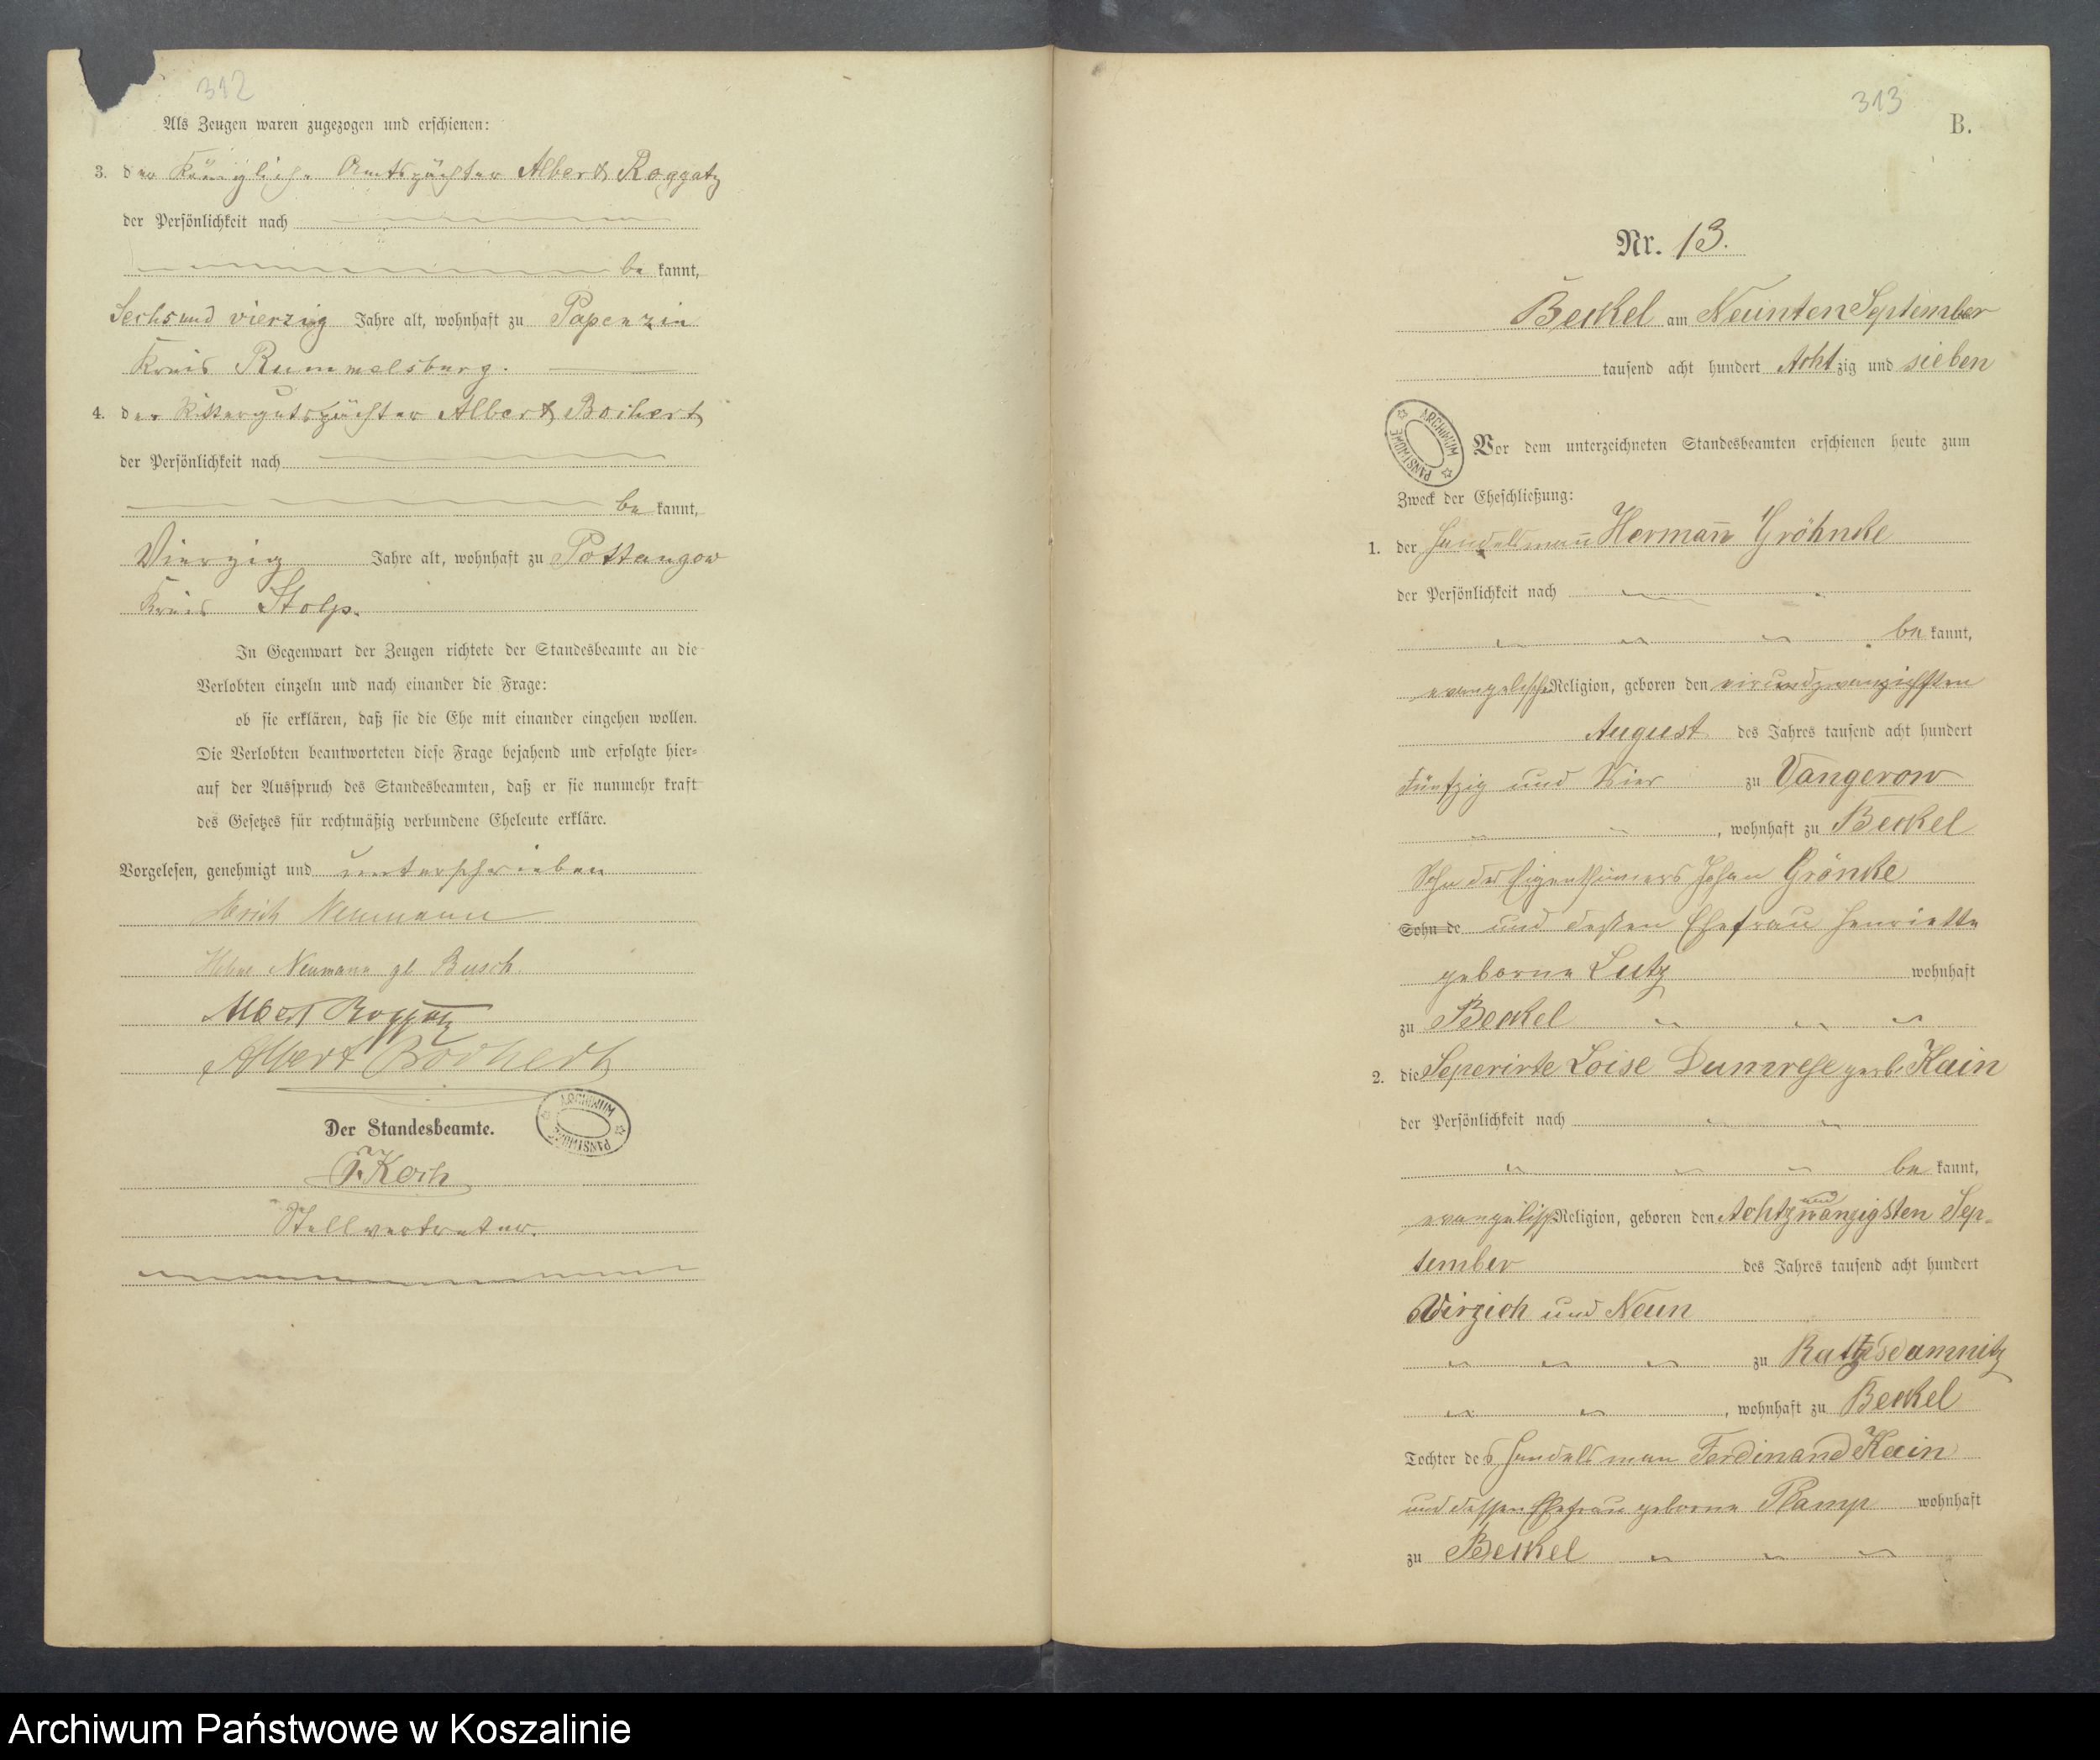 312
Als Zeugen waren zugezogen und erschienen:
3. der Königliche Amtspächter Albert Roggatz
der Persönlichkeit nach
be kannt,
Sechsund vierzig Jahre alt, wohnhaft zu Papenzin
Kreis Rummelsburg.
4. der Rittergutspächter Albert Borchert
der Persönlichkeit nach
be kannt,
Vierzig Jahre alt, wohnhaft zu Pottangow
Kreis Stolp.
In Gegenwart der Zeugen richtete der Standesbeamte an die
Verlobten einzeln und nach einander die Frage:
ob sie erklären, daß sie die Ehe mit einander eingehen wollen.
Die Verlobten beantworteten diese Frage bejahend und erfolgte hier-
auf der Ausspruch des Standesbeamten, daß er sie nunmehr kraft
des Gesetzes für rechtmäßig verbundene Eheleute erkläre.
Vorgelesen, genehmigt und unterschrieben
Neumann
Neumann gb Busch
Albert Roggatz
Albert Borchert
ARCHIWUM PAŃSTWOWE
Der Standesbeamte.
Koch
Stellvertreter.
313
B.
Nr. 13.
Beckel am Neunten September
tausend acht hundert Achtzig und sieben
ARCHIWUM PAŃSTWOWE
Vor dem unterzeichneten Standesbeamten erschienen heute zum
Zweck der Eheschließung:
1. der Handelsmann Hermann Gröhncke
der Persönlichkeit nach
be kannt,
evangelischer Religion, geboren den virundzwanzichsten
August des Jahres tausend acht hundert
Fünfzig und Vier zu Vangerow
, wohnhaft zu Beckel
Sohn des Eigenthümers Johan Gröncke
Sohn de und dessen Ehefrau Henriette
geborne Lutz wohnhaft
zu Beckel
2. die Seperirte Loise Dumrese geb. Kain
der Persönlichkeit nach
be kannt,
evangelisch Religion, geboren den Acht und zwanzigsten Sep-
tember des Jahres tausend acht hundert
Virzich und Neun
zu Rathsdamnitz
, wohnhaft zu Beckel
Tochter des Handelsman Ferdinand Kain
und dessen Ehefrau geborne Ramp wohnhaft
zu Beckel
Archiwum Państwowe w Koszalinie